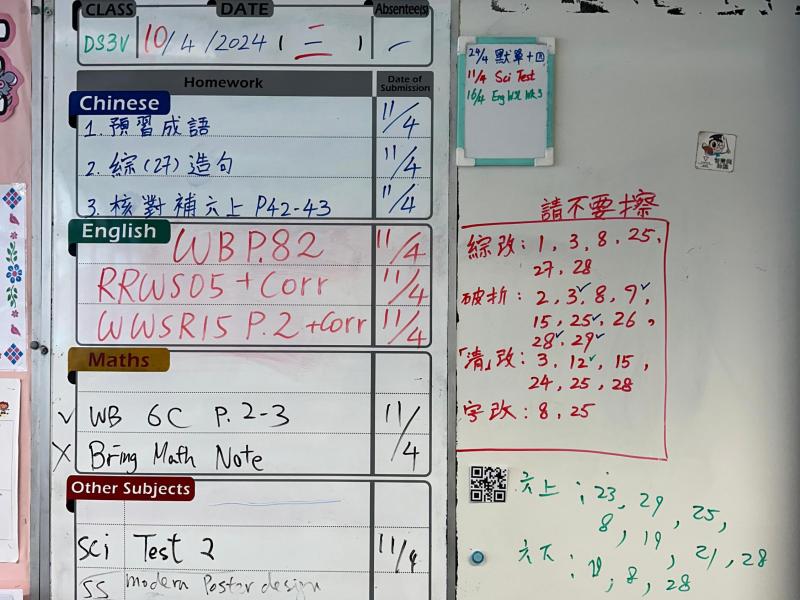 CLASS DATE Absentee(s)
DS3V 10/4/2024 ( 三 )
Homework Date of Submission
Chinese
1. 預習成語 11/4
2. 綜(27)造句 11/4
3. 核對補六上 P42-43 11/4
English
WB P.82 11/4
RRWS05 + Corr 11/4
WWSR15 P.2 + Corr 11/4
Maths
WB 6C P. 2-3 11/4
Bring Math Note
Other Subjects
Sci Test 2 11/4
SS modern Poster design
29/4 默單十四
11/4 Sci Test
16/4 Eng
請不要擦
綜改: 1, 3, 8, 25,
27, 28
破折: 2, 3, 8, 9,
15, 25, 26,
28, 29
「清」改: 3, 12, 15,
24, 25, 28
字改: 8, 25
六上: 23, 29, 25,
8, 19
六下: 21, 28
8, 28